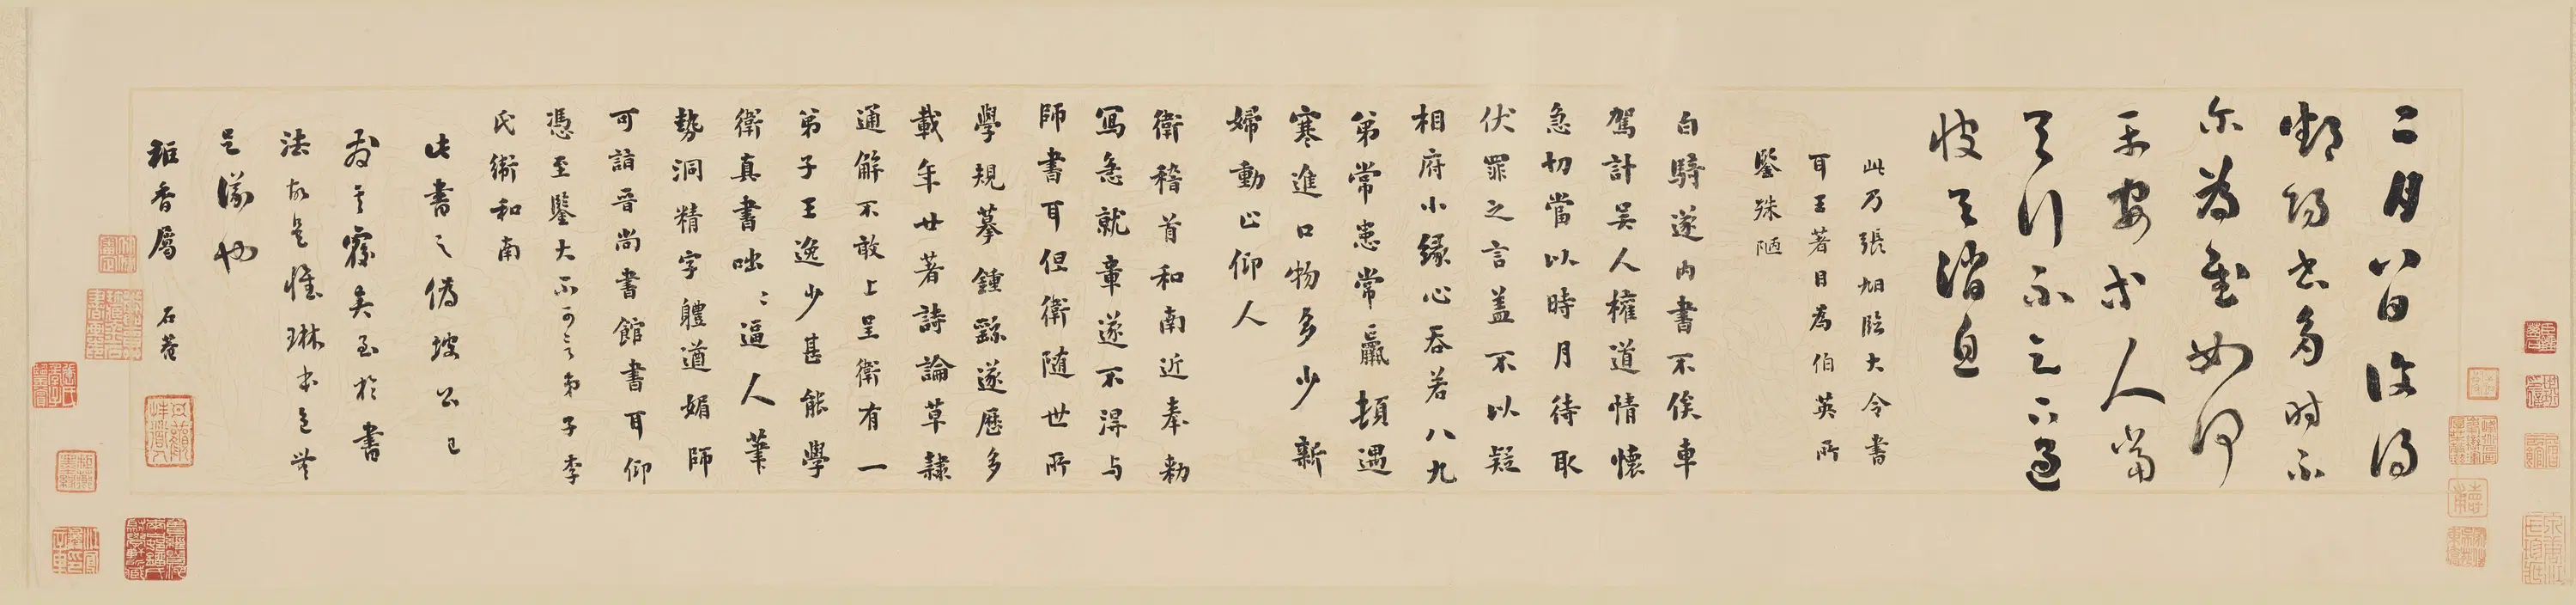 二月八日復得
鄱陽書多時不
尔為慰如何
平安等人當
與行不足不過
彼與消息
此乃張旭臨大令書
耳王著目為伯英所
鑒殊陋
白騎遂內書不俟車
駕計吴人權道情懷
急切當以時月待取
伏罪之言盖不以疑
相府小緣心吞若八九
弟常患常羸頓遇
寒進口物多少新
婦動止仰人
衛稽首和南近奉勅
寫急就章遂不得与
師書耳但衛随世所
學規摹鍾繇遂歷多
載年廿著詩論草隸
通解不敢上呈衛有一
弟子王逸少甚能學
衛真書咄〻逼人筆
勢洞精字體遒媚師
可詣晉尚書館書耳仰
憑至鑒大不可言弟子李
氏衛和南
此書之偽坡公已
法故是
是偽也
香屬 石菴